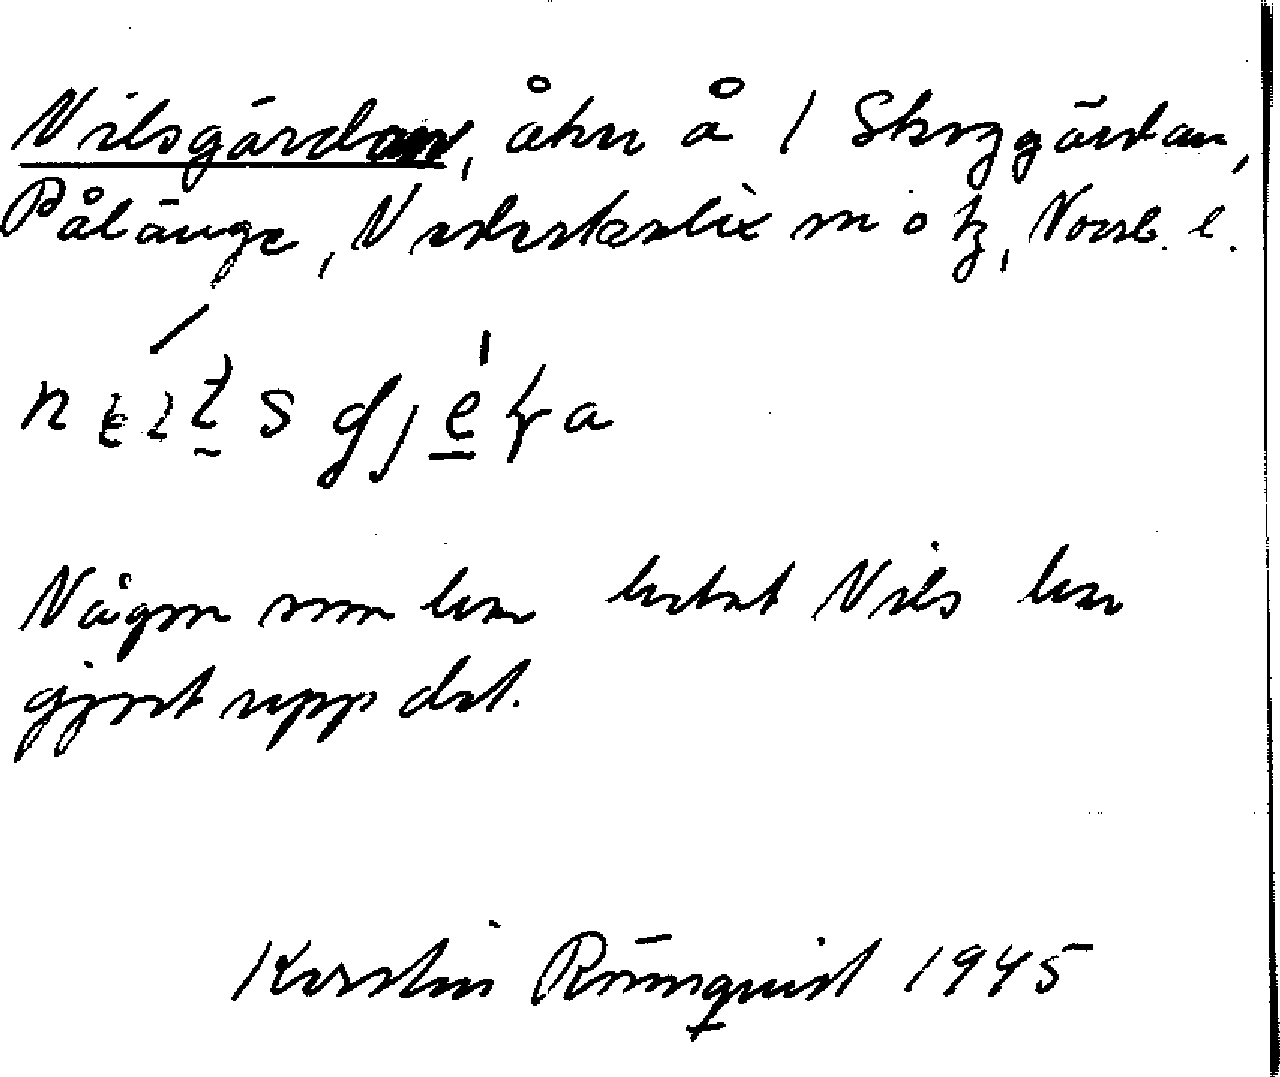 Nilsgärdan, åker å / Skoggärdan,
Pålänge, Nederkalix sn o tg, Norrb. l.
Någon som har hetat Nils har
gjort upp det.
Kerstin Rönnquist 1945